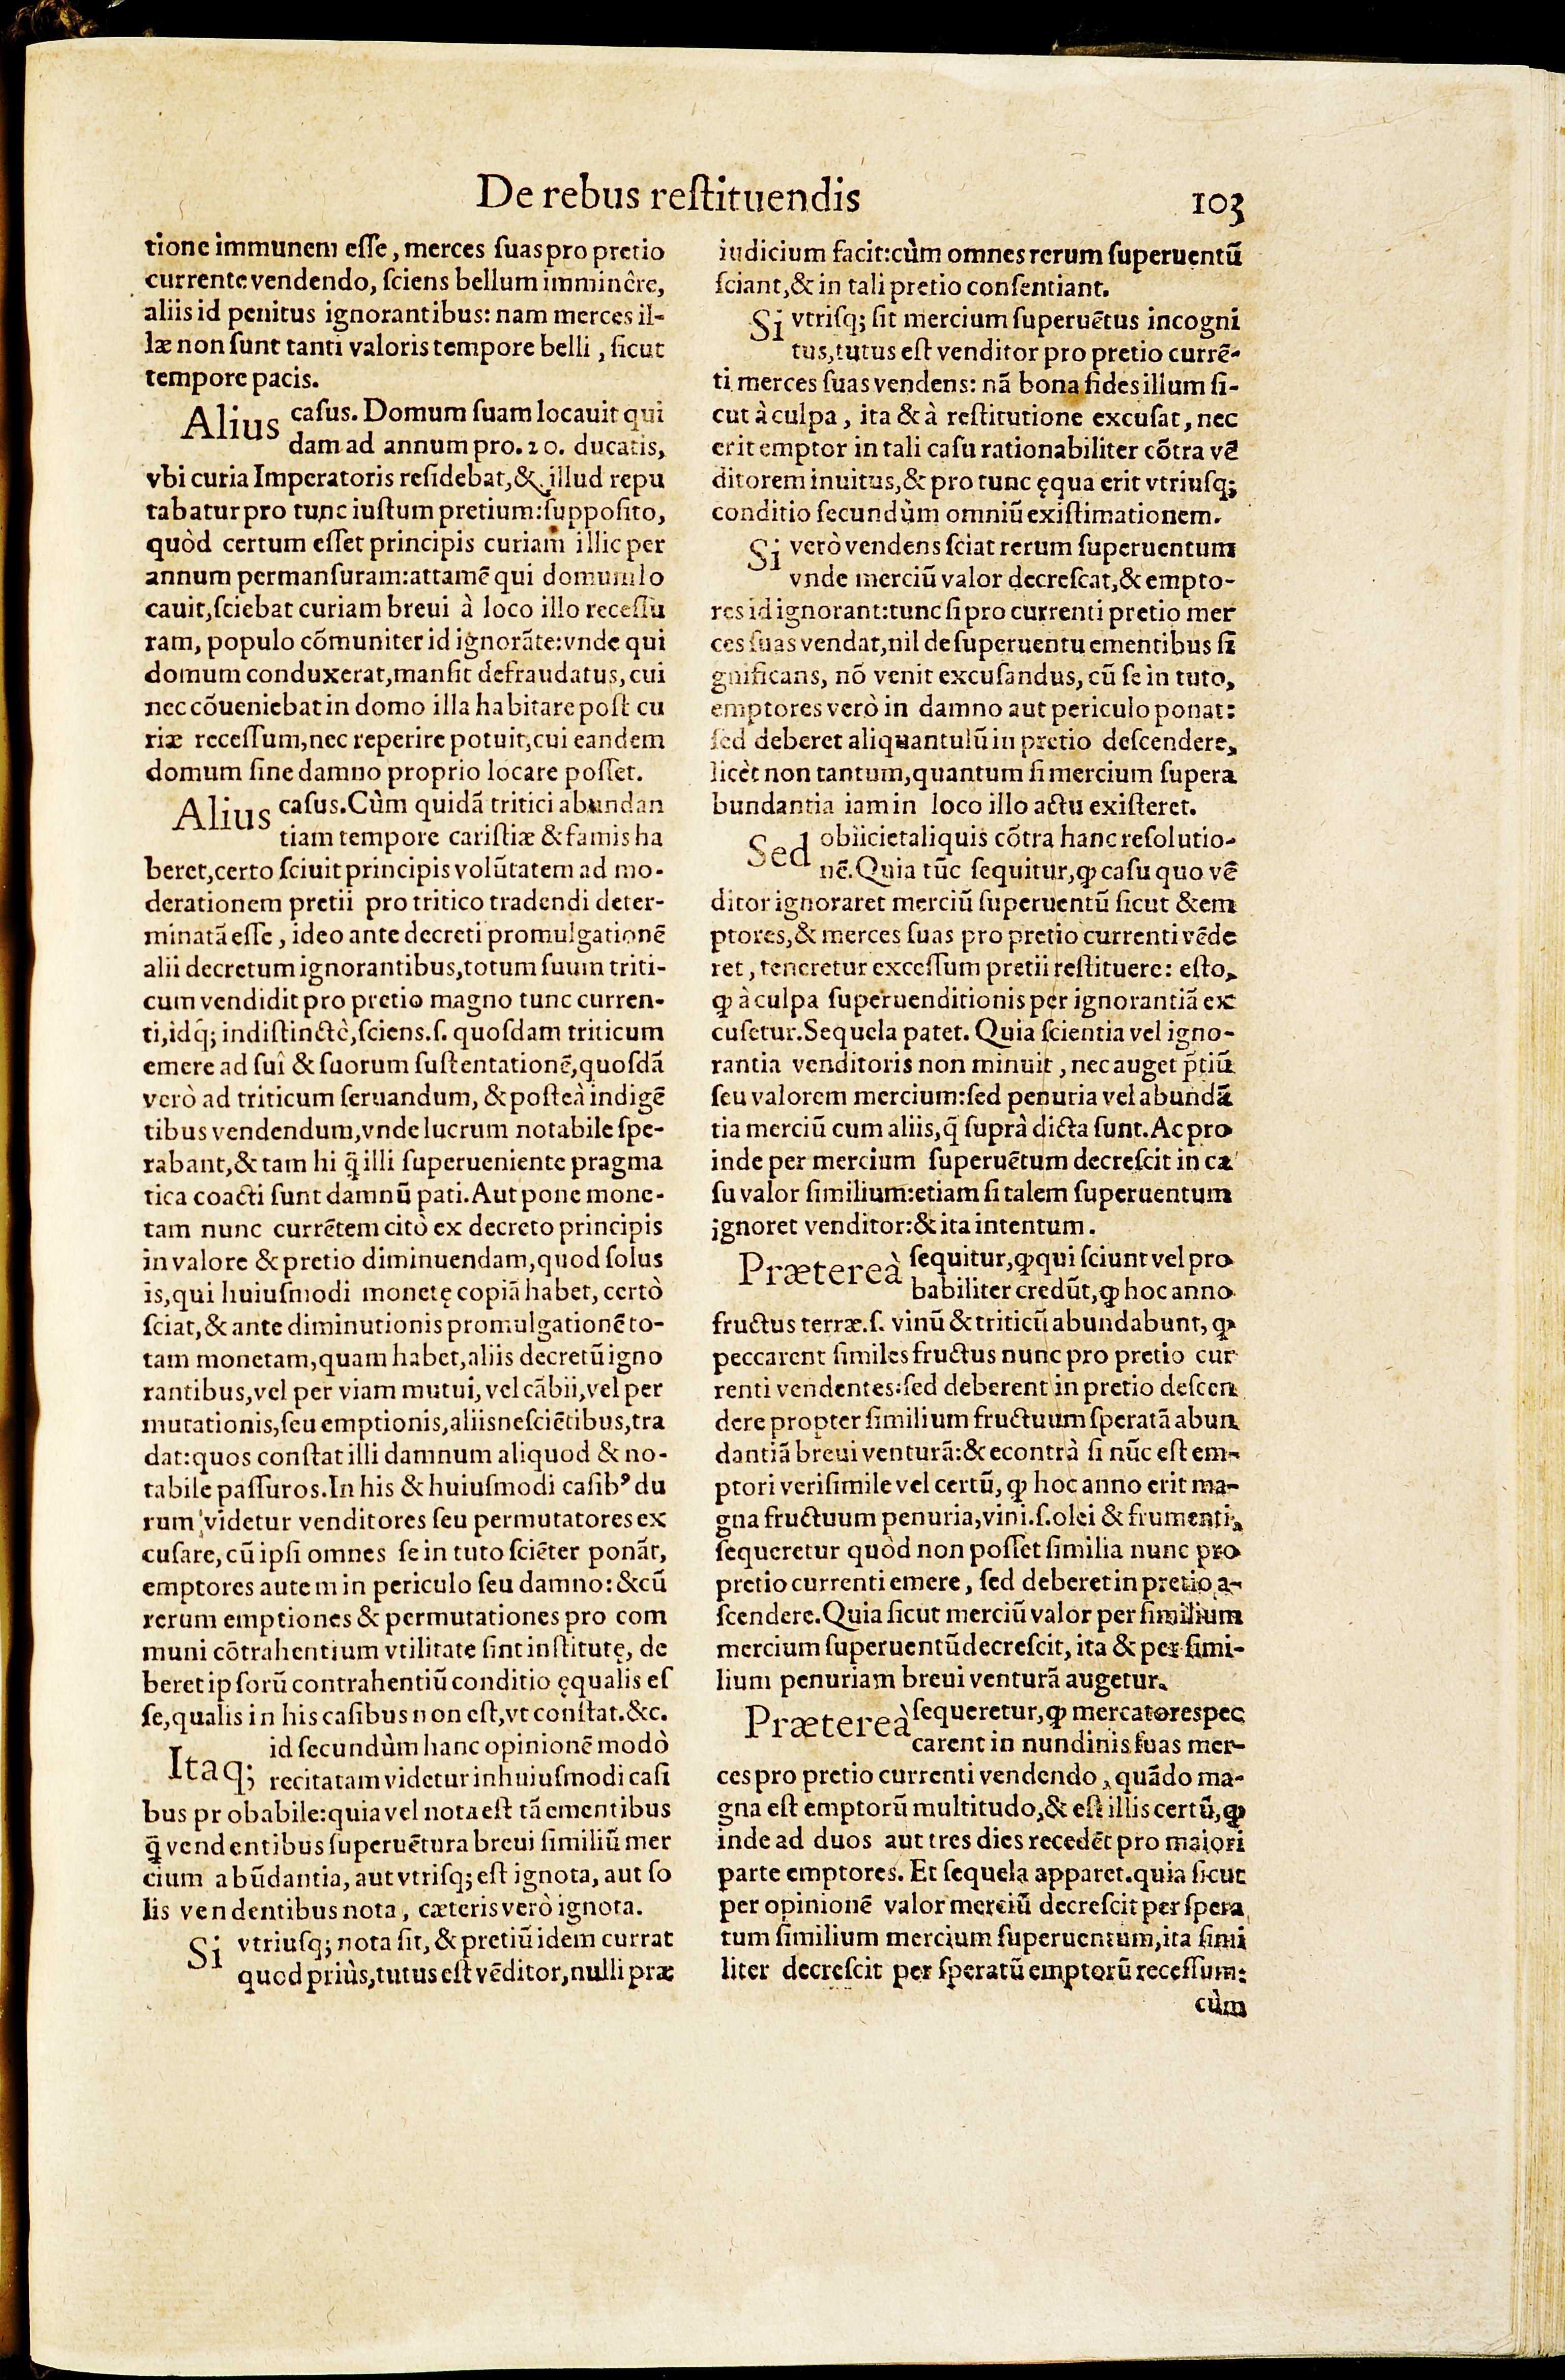 De rebus reſtituendis
103
tione immunem eſſe, merces ſuas pro pretio
currente vendendo, ſciens bellum imminêre,
aliis id penitus ignorantibus: nam merces il-
læ non ſunt tanti valoris tempore belli, ſicut
tempore pacis.
Alius caſus. Domum ſuam locauit qui
dam ad annum pro. 20. ducatis,
vbi curia Imperatoris reſidebat, & illud repu
tabatur pro tunc iuſtum pretium: ſuppoſito,
quòd certum eſſet principis curiam illic per
annum permanſuram: attamē qui domum lo
cauit, ſciebat curiam breui à loco illo receſſu
ram, populo cōmuniter id ignorāte: vnde qui
domum conduxerat, manſit defraudatus, cui
nec cōueniebat in domo illa habitare poſt cu
riæ receſſum, nec reperire potuit, cui eandem
domum ſine damno proprio locare poſſet.
Alius caſus. Cùm quidā tritici abundan
tiam tempore cariſtiæ & famis ha
beret, certo ſciuit principis volūtatem ad mo-
derationem pretii pro tritico tradendi deter-
minatā eſſe, ideo ante decreti promulgationē
alii decretum ignorantibus, totum ſuum triti-
cum vendidit pro pretio magno tunc curren-
ti, idq́; indiſtinctè, ſciens. ſ. quoſdam triticum
emere ad ſui & ſuorum ſuſtentationē, quoſdā
verò ad triticum ſeruandum, & poſteà indigē
tibus vendendum, vnde lucrum notabile ſpe-
rabant, & tam hi q̄ illi ſuperueniente pragma
tica coacti ſunt damnū pati. Aut pone mone-
tam nunc currētem citò ex decreto principis
in valore & pretio diminuendam, quod ſolus
is, qui huiuſmodi monetę copiā habet, certò
ſciat, & ante diminutionis promulgationē to-
tam monetam, quam habet, aliis decretū igno
rantibus, vel per viam mutui, vel cābii, vel per
mutationis, ſeu emptionis, aliis neſciētibus, tra
dat: quos conſtat illi damnum aliquod & no-
tabile paſſuros. In his & huiuſmodi caſibꝰ du
rum videtur venditores ſeu permutatores ex
cuſare, cū ipſi omnes ſe in tuto ſciēter ponāt,
emptores autem in periculo ſeu damno: & cū
rerum emptiones & permutationes pro com
muni cōtrahentium vtilitate ſint inſtitutę, de
beret ipſorū contrahentiū conditio ęqualis eſ
ſe, qualis in his caſibus non eſt, vt conſtat. &c.
Itaq; id ſecundùm hanc opinionē modò
recitatam videtur in huiuſmodi caſi
bus probabile: quia vel nota eſt tā ementibus
q̄ vendentibus ſuperuētura breui ſimiliū mer
cium abūdantia, aut vtriſq; eſt ignota, aut ſo
lis vendentibus nota, cæteris verò ignota.
Si vtriuſq; nota ſit, & pretiū idem currat
quod priùs, tutus eſt vēditor, nulli præ
iudicium facit: cùm omnes rerum ſuperuentū
ſciant, & in tali pretio conſentiant.
Si vtriſq; ſit mercium ſuperuētus incogni
tus, tutus eſt venditor pro pretio currē-
ti merces ſuas vendens: nā bona fides illum ſi-
cut à culpa, ita & à reſtitutione excuſat, nec
erit emptor in tali caſu rationabiliter cōtra vē
ditorem inuitus, & pro tunc ęqua erit vtriuſq;
conditio ſecundùm omniū exiſtimationem.
Si verò vendens ſciat rerum ſuperuentum
vnde merciū valor decreſcat, & empto-
res id ignorant: tunc ſi pro currenti pretio mer
ces ſuas vendat, nil de ſuperuentu ementibus ſi
gnificans, nō venit excuſandus, cū ſe in tuto,
emptores verò in damno aut periculo ponat:
ſed deberet aliquantulū in pretio deſcendere,
licèt non tantum, quantum ſi mercium ſupera
bundantia iam in loco illo actu exiſteret.
Sed obiiciet aliquis cōtra hanc reſolutio-
nē. Quia tūc ſequitur, ꝙ caſu quo vē
ditor ignoraret merciū ſuperuentū ſicut & em
ptores, & merces ſuas pro pretio currenti vēde
ret, teneretur exceſſum pretii reſtituere: eſto,
ꝙ à culpa ſuperuenditionis per ignorantiā ex
cuſetur. Sequela patet. Quia ſcientia vel igno-
rantia venditoris non minuit, nec auget p̄tiū
ſeu valorem mercium: ſed penuria vel abundā
tia merciū cum aliis, q̄ ſuprà dicta ſunt. Ac pro
inde per mercium ſuperuētum decreſcit in ca
ſu valor ſimilium: etiam ſi talem ſuperuentum
ignoret venditor: & ita intentum.
Prætereà ſequitur, ꝙ qui ſciunt vel pro
babiliter credūt, ꝙ hoc anno
fructus terræ. ſ. vinū & triticū abundabunt, ꝙ
peccarent ſimiles fructus nunc pro pretio cur
renti vendentes: ſed deberent in pretio deſcen
dere propter ſimilium fructuum ſperatā abun
dantiā breui venturā: & econtrà ſi nūc eſt em-
ptori veriſimile vel certū, ꝙ hoc anno erit ma-
gna fructuum penuria, vini. ſ. olei & frumenti,
ſequeretur quòd non poſſet ſimilia nunc pro
pretio currenti emere, ſed deberet in pretio a-
ſcendere. Quia ſicut merciū valor per ſimilium
mercium ſuperuentū decreſcit, ita & per ſimi-
lium penuriam breui venturā augetur.
Prætereà ſequeretur, ꝙ mercatores pec
carent in nundinis ſuas mer-
ces pro pretio currenti vendendo, quādo ma-
gna eſt emptorū multitudo, & eſt illis certū, ꝙ
inde ad duos aut tres dies recedēt pro maiori
parte emptores. Et ſequela apparet. quia ſicut
per opinionē valor merciū decreſcit per ſpera
tum ſimilium mercium ſuperuentum, ita ſimi
liter decreſcit per ſperatū emptorū receſſum:
cùm